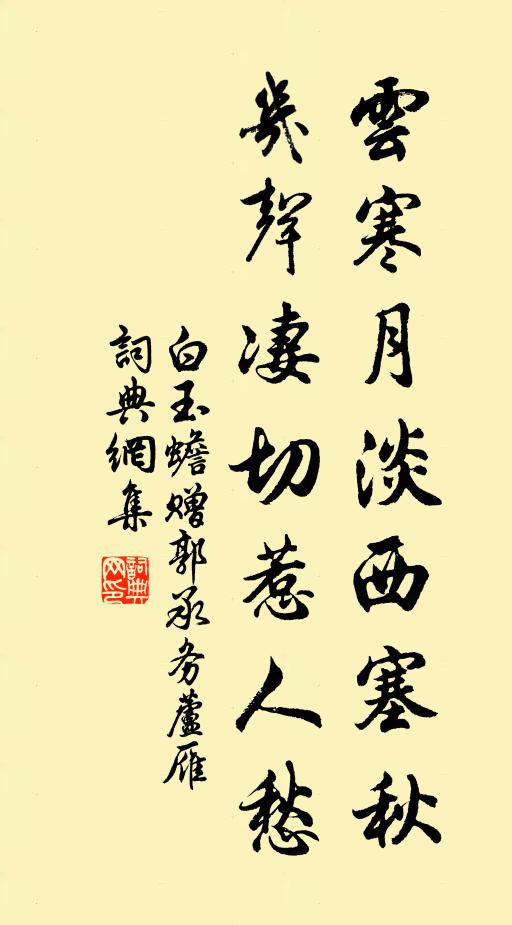 雲寒月淡西塞秋
幾聲淒切惹人愁
白玉蟾贈郭承务蘆雁
詞典網集
詞典网印